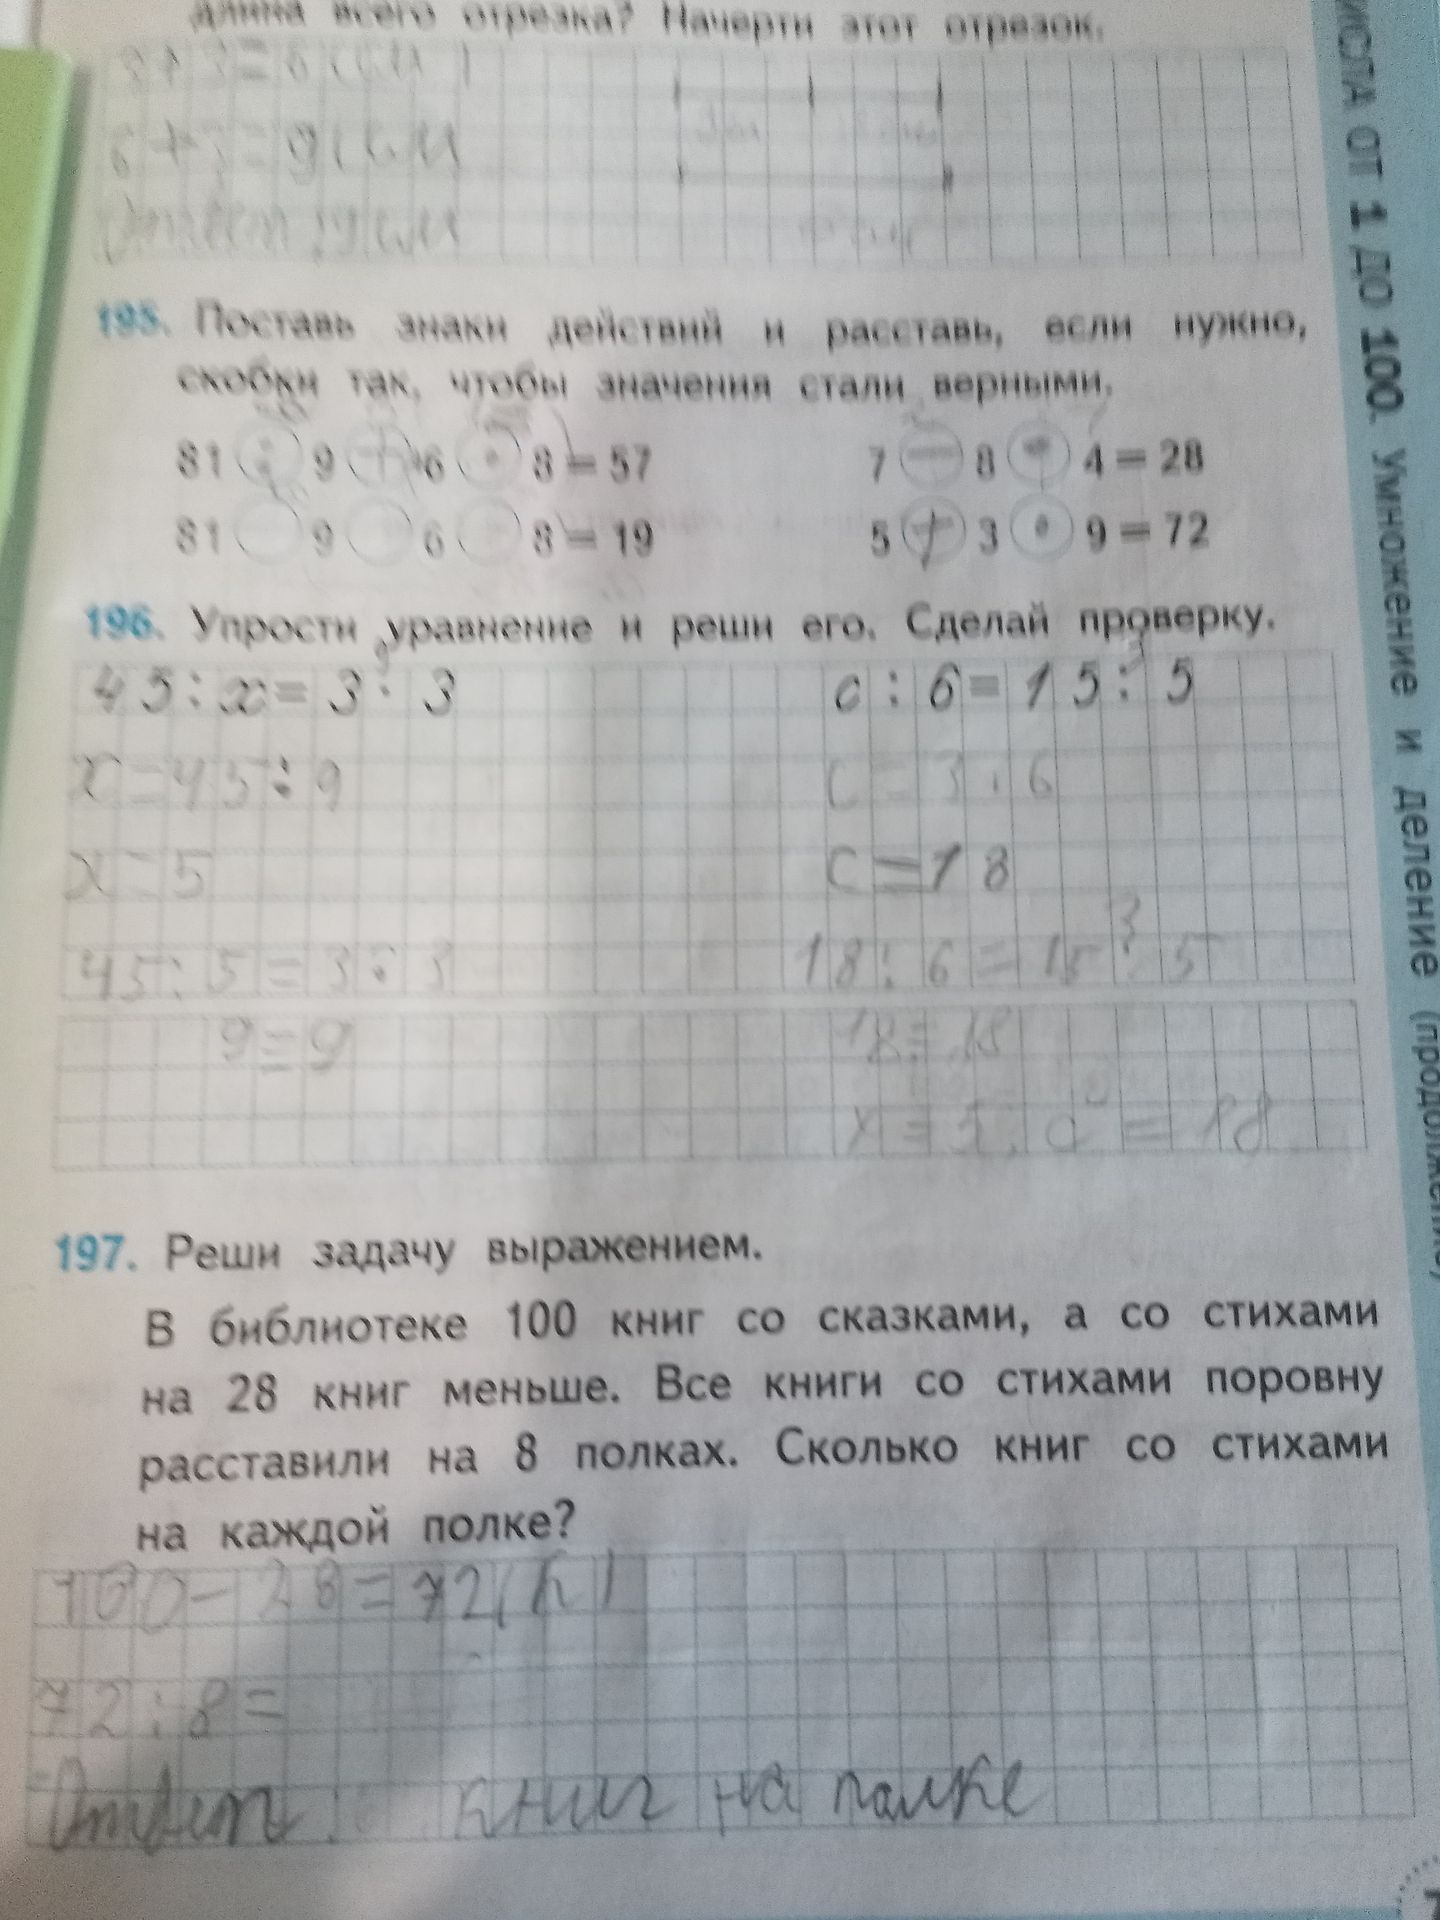 длина всего отрезка? Начерти этот отрезок.
3+3=6(см)
6+3=9(см
Ответ: 9 см
195. Поставь знаки действий и расставь, если нужно,
скобки так, чтобы значения стали верными.
81 : 9 + 6 · 8 = 57
7 — 8 · 4 = 28
81 9 6 8 = 19
5 + 3 · 9 = 72
196. Упрости уравнение и реши его. Сделай проверку.
45 : x = 3 · 3
c : 6 = 15 : 5
x=45:9
c=3·6
x=5
c=18
45:5=3·3
18:6=15:5
9=9
18=18
x=5, c=18
197. Реши задачу выражением.
В библиотеке 100 книг со сказками, а со стихами
на 28 книг меньше. Все книги со стихами поровну
расставили на 8 полках. Сколько книг со стихами
на каждой полке?
100-28=72(к)
72:8=
Ответ: книг на полке
ЧИСЛА ОТ 1 ДО 100. Умножение и деление (продолжение)